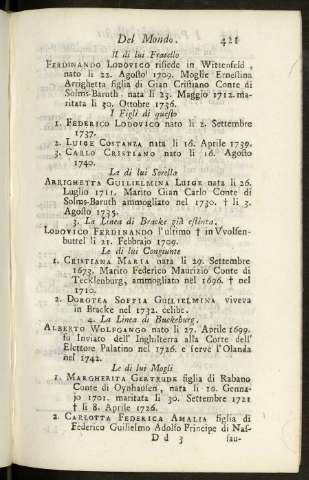 Del Mondo. 421
Il di lui Fratello
FERDINANDO LODOVICO risiede in Wittenfeld,
nato li 22. Agosto 1709. Moglie Ernestina
Arrighetta figlia di Gian Cristiano Conte di
Solms-Baruth, nata li 23. Maggio 1712. ma-
ritata li 30. Ottobre 1736.
I Figli di questo
1. FEDERICO LODOVICO nato li 2. Settembre
1737.
2. LUIGE COSTANZA nata li 16. Aprile 1739.
3. CARLO CRISTIANO nato li 16. Agosto
1740.
La di lui Sorella
ARRIGHETTA GUILIELMINA LUIGE nata li 26.
Luglio 1711. Marito Gian Carlo Conte di
Solms-Baruth ammogliato nel 1730. † li 3.
Agosto 1735.
3. La Linea di Bracke già estinta.
LODOVICO FERDINANDO l'ultimo † in Vvolfen-
buttel li 21. Febbrajo 1709.
Le di lui Congiunte
1. CRISTIANA MARIA nata li 29. Settembre
1673. Marito Federico Maurizio Conte di
Tecklenburg, ammogliato nel 1696. † nel
1710.
2. DOROTEA SOFFIA GUILIELMINA viveva
in Bracke nel 1732. celibe.
4. La Linea di Buckeburg.
ALBERTO WOLFGANGO nato li 27. Aprile 1699.
fu Inviato dell' Inghilterra alla Corte dell'
Elettore Palatino nel 1726. e servè l'Olanda
nel 1742.
Le di lui Mogli
1. MARGHERITA GERTRUDE figlia di Rabano
Conte di Oynhausen, nata li 10. Genna-
jo 1701. maritata li 30. Settembre 1721
† li 8. Aprile 1726.
2. CARLOTTA FEDERICA AMALIA figlia di
Federico Guilielmo Adolfo Principe di Nas-
D d 3 sau-